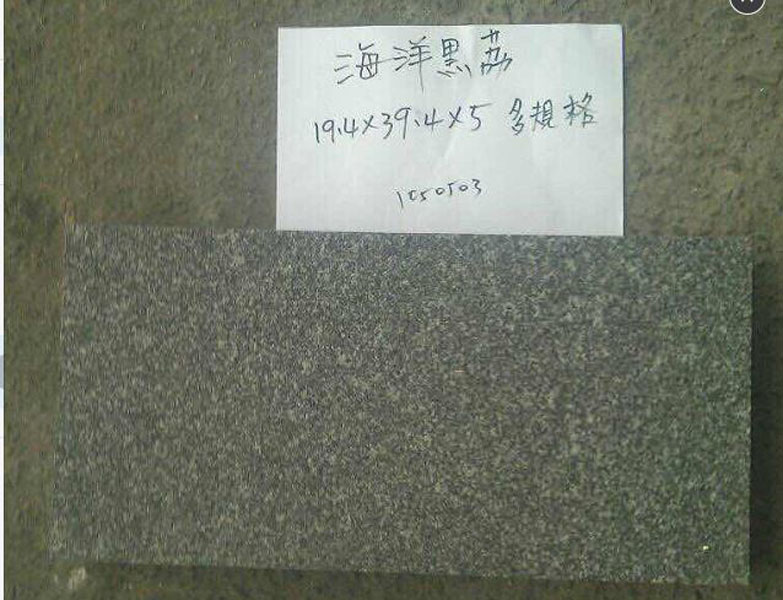 海洋黑荔
19.4×39.4×5 多規格
1050503